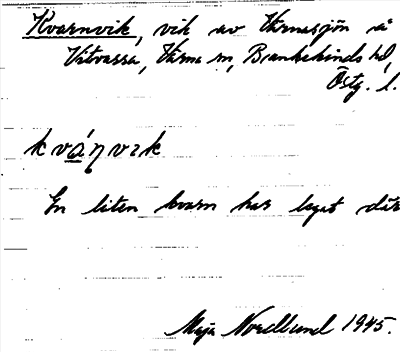 Kvarnvik, vik av Värnasjön å
Vitvassa, Värna sn, Bankekinds hd,
Östg. l.
kvánvɪk
En liten kvarn har legat där
Maja Nordlund 1945.